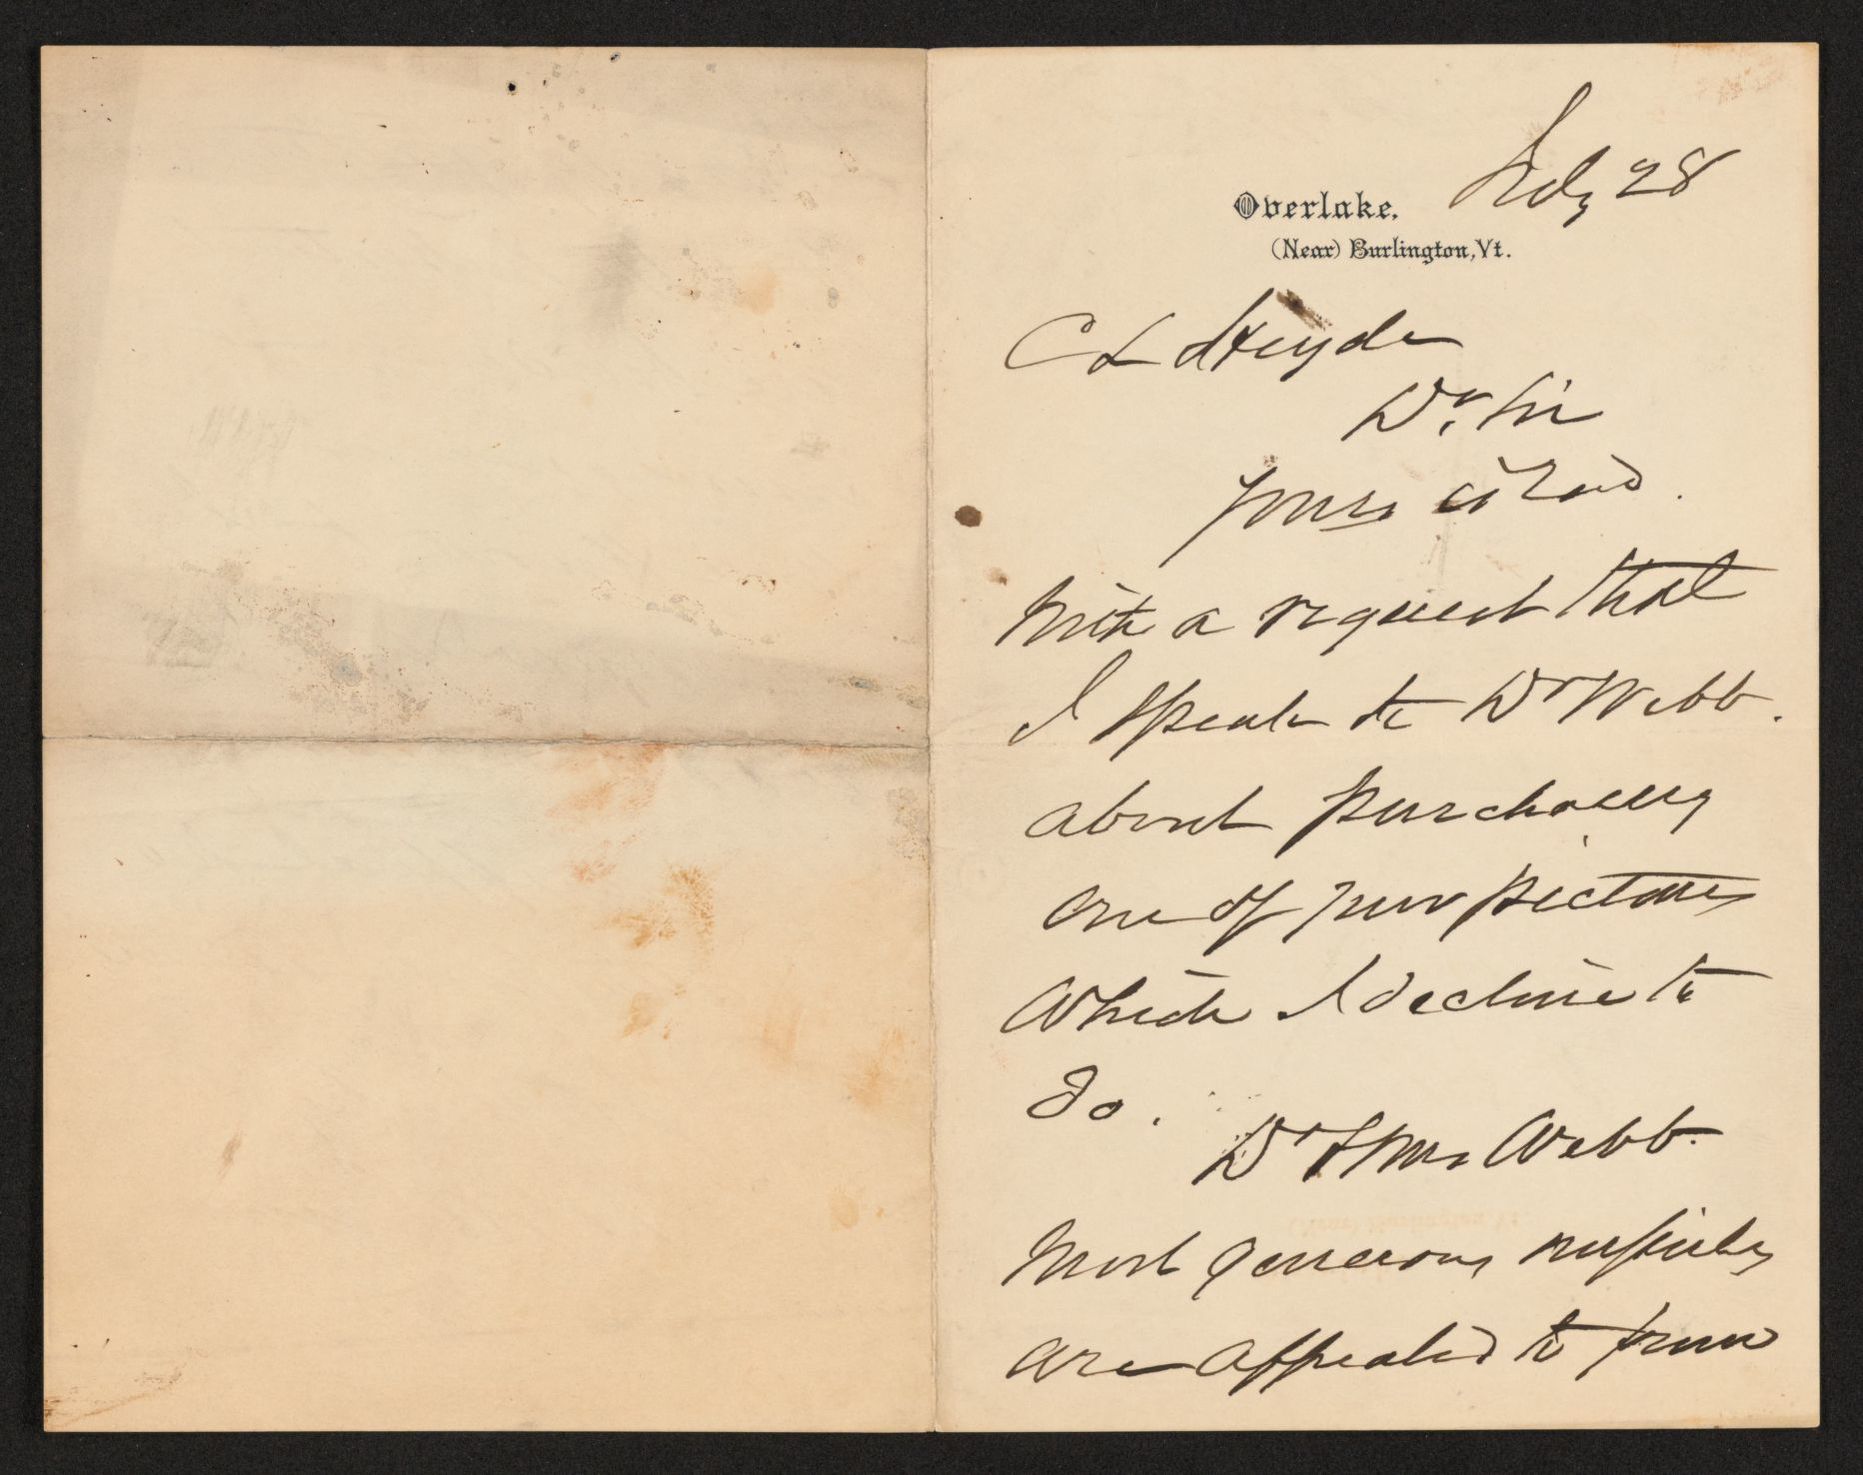 July 28
Overlake.
(Near) Burlington, Vt.
C L Heyde
Dr. Sir
Yours is Recd.
With a request that
I speak to Dr Webb.
about purchasing
one of your pictures
Which I decline to
do.
Dr & Mrs Webb.
Most generous
are appealed to from